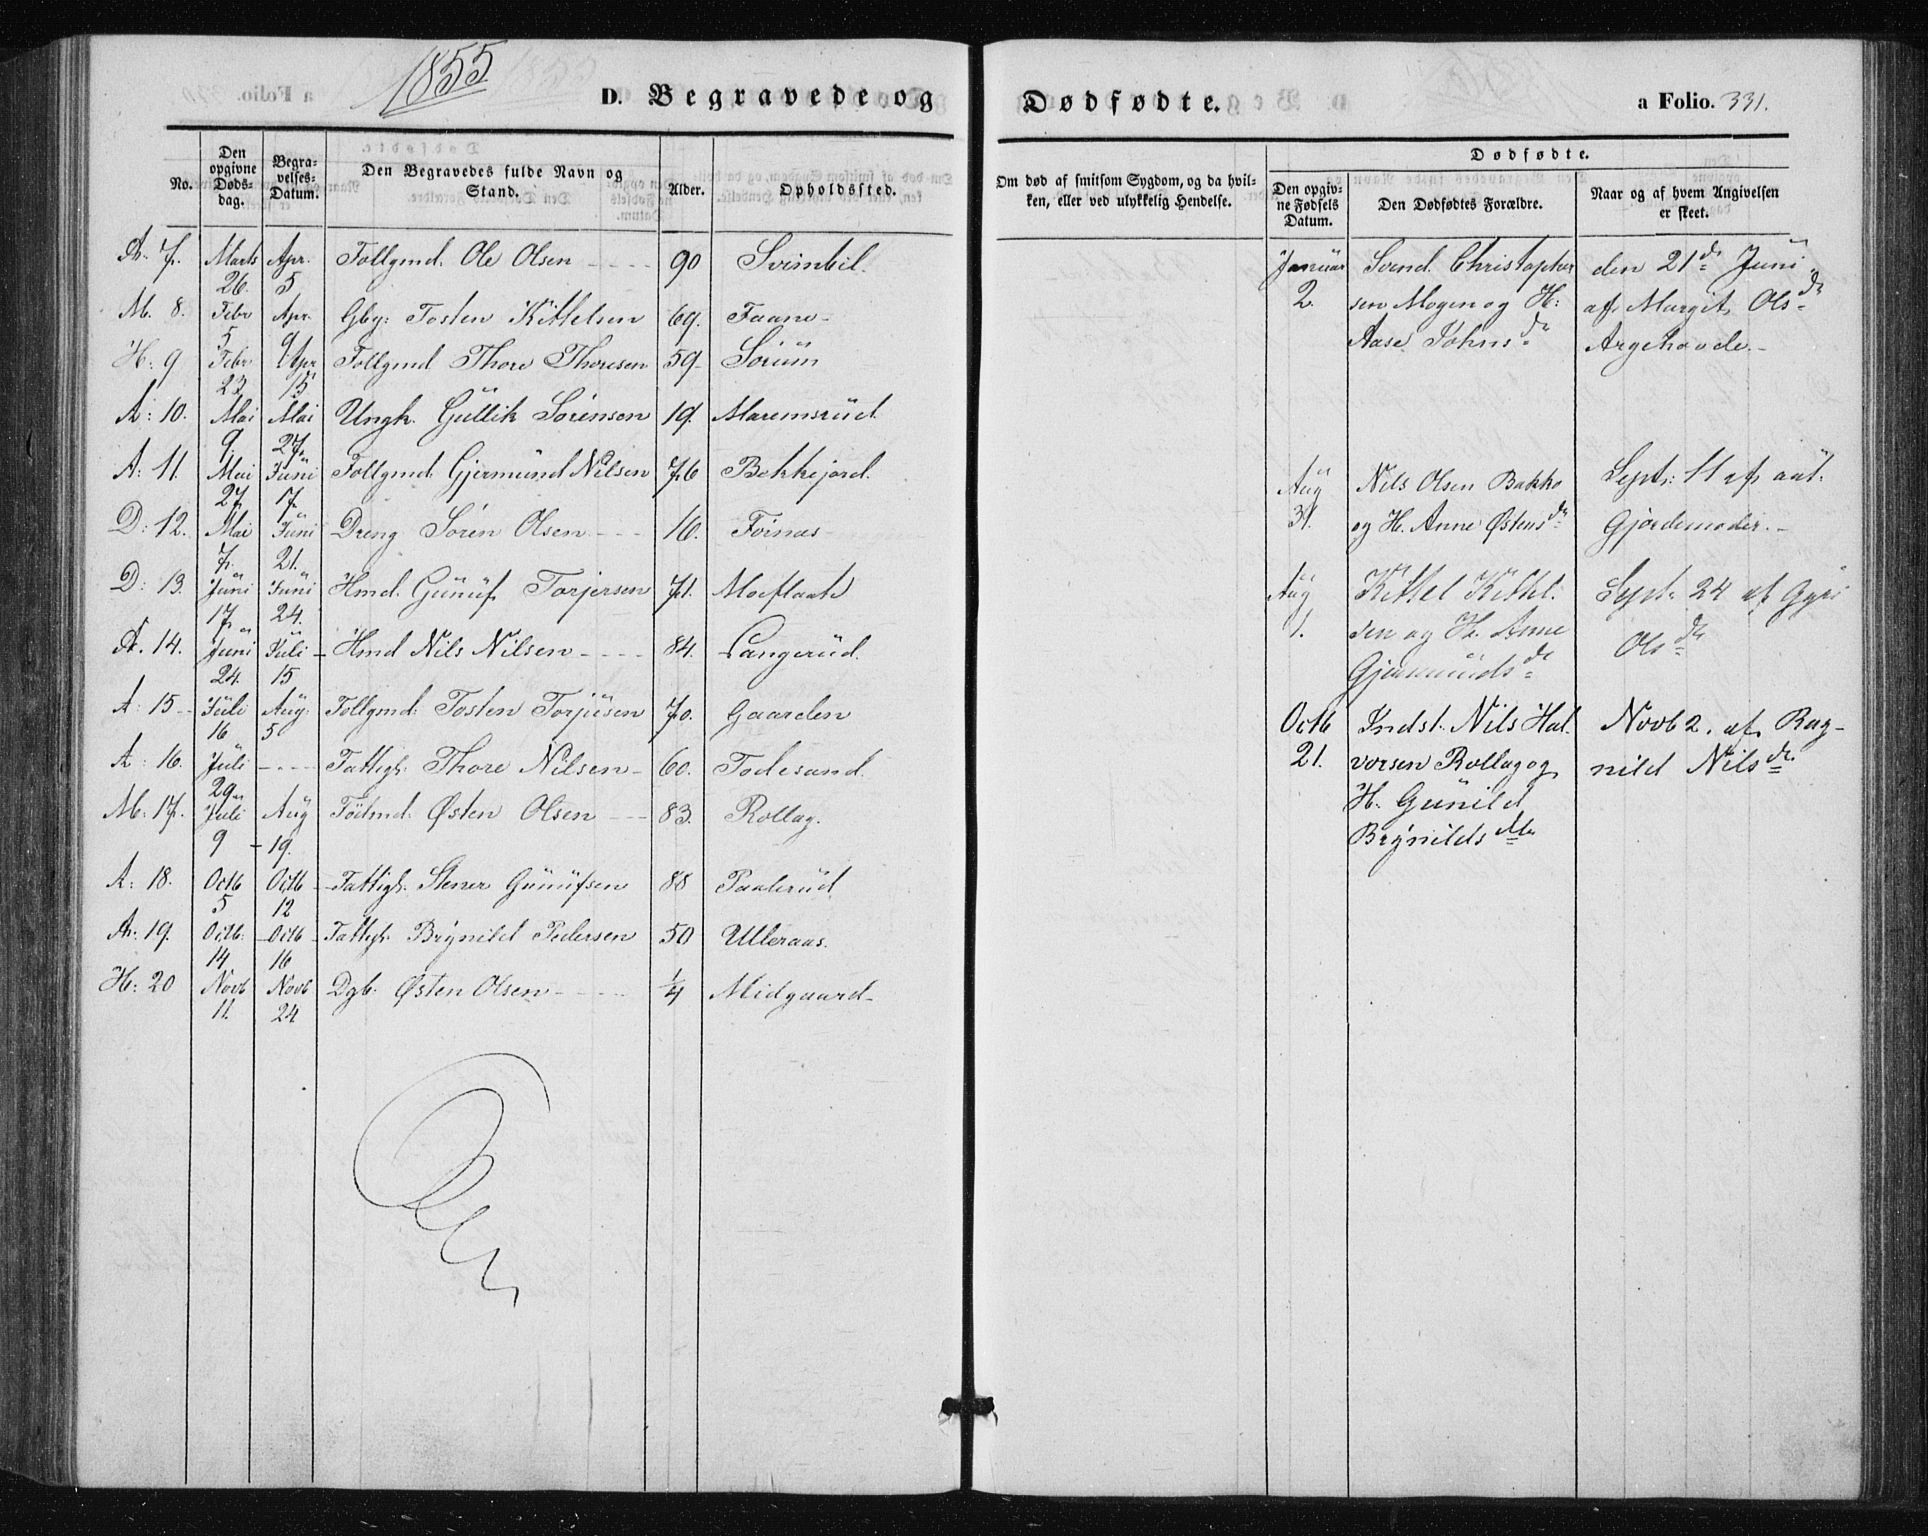 1855
D. Begravede og Dødfødte.
a Folio. 331.
No.
Den opgivne Døds-dag.
Begra-velses-Datum.
Den Begravedes fulde Navn og Stand.
Alder.
Opholdssted.
Om død af smitsom Sygdom, og da hvil-
ken, eller ved ulykkelig Hendelse.
Dødfødte.
Den opgiv-ne Fødsels Datum.
Den Dødfødtes Forældre.
Naar og af hvem Angivelsen er skeet.
A. 7. Marts 26. Apr. 5 Follgmd. Ole Olsen 90 Svimbil.
M. 8. Febr 5 Apr. 9 Gbr: Tosten Kittelsen 69. Faane
H: 9 Febr 23 Apr 15 Follgmd Thore Thoresen 59. Sørum
A: 10. Mai 9. Mai 27. Ungk. Gullik Sørensen 19. Maremsrud
A: 11. Mai 27. Juni 17. Follgmd. Gjermund Nilsen 76 Bekkejord.
D: 12. Mai 7. Juni 21. Dreng Søren Olsen 16. Fornæs
D: 13. Juni 17. Juni 24. Hmd. Gunuf Torjersen 71. Moeflaate
A. 14. Juni 24. Juli 15 Hmd Nils Nilsen 84. Langerud.
A: 15 Juli 16 Aug. 5 Follgmd: Tosten Torjusen 70. Gaarden
A: 16. Juli 29 Fattigl: Thore Nilsen 60. Todesand.
M: 17. Juli 9 Aug 19. Fødmd: Østen Olsen 83. Rollag.
A: 18. Octb 5 Octb 12 Fattigl: Stener Gunufsen 88 Paalerud
A: 19. Octb. 14 Octb 16 Fattigl. Brynild Pedersen 50 Ulleraas.
H: 20 Novb 11. Novb 24 Dgb. Østen Olsen 1/4 Midgaard
Januar Svend Christopher den 21de Juni
2. sen Mogen og H: af Margit Olsdr
Aase Johnsdr Argehovde.
Aug Nils Olsen Bakke Sept: 11 af aut.
31. og H. Anne Østensdr Gjordemoder.
Aug Kittel Kittel: Sept. 24 af Gyri
1. sen og H. Anne Olsdr
Gjermundsdr
Octb Indst. Nils Hal- Novb 2. af Rag-
21. vorsen Rollag og nild Nilsdr
H. Gunild
Brynildsdtr